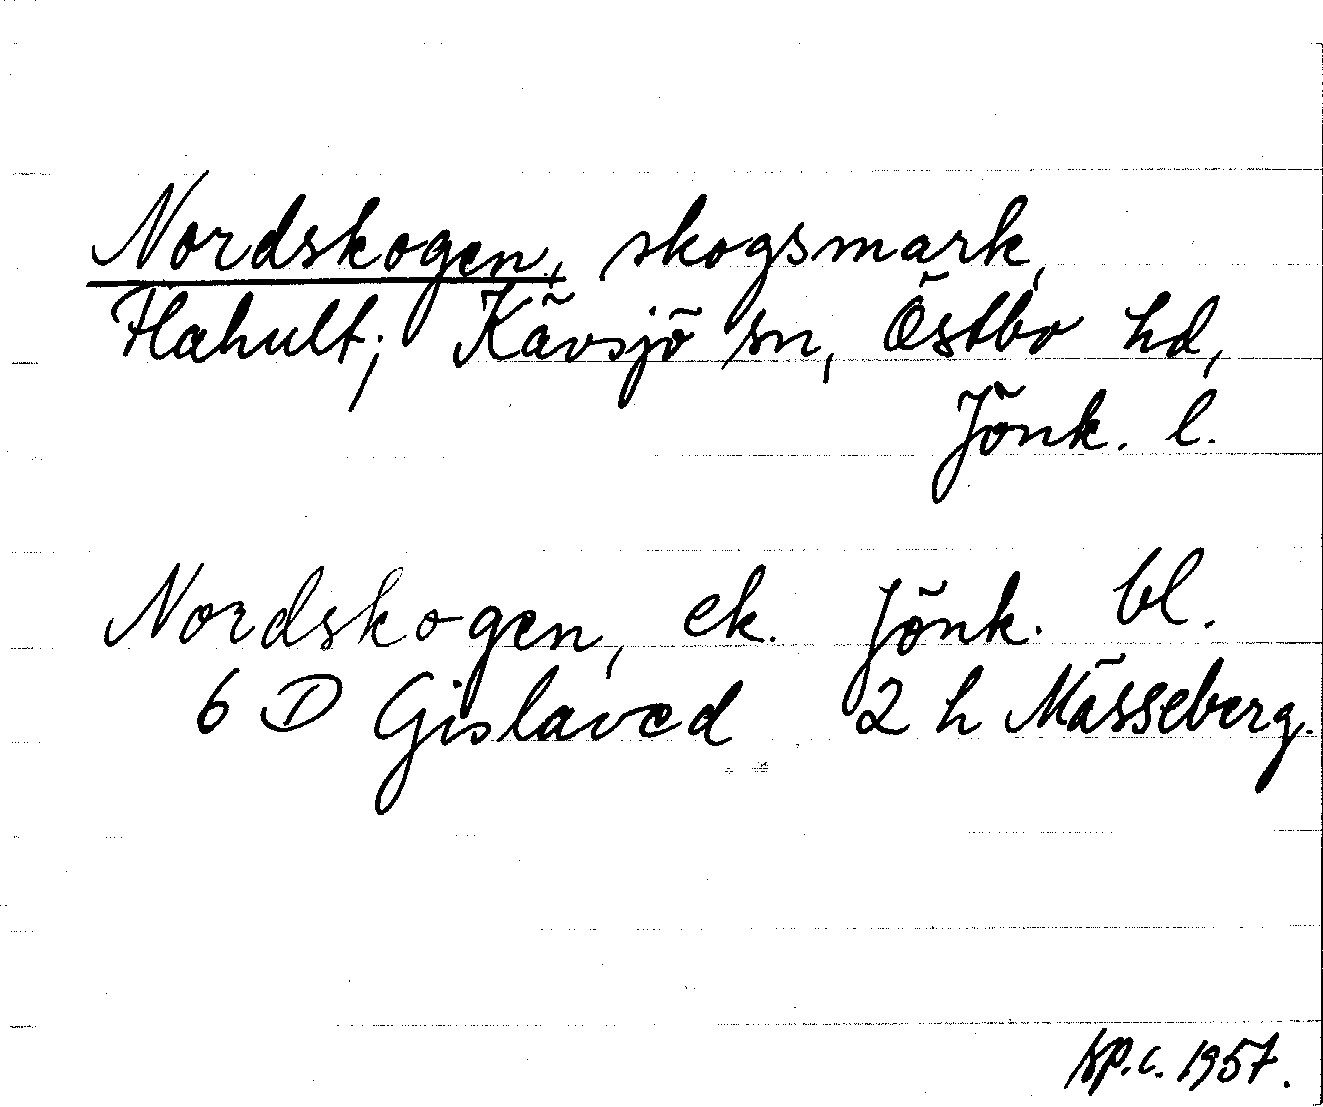 Nordskogen, skogsmark,
Flahult; Kävsjö sn, Östbo hd,
Jönk. l.
Nordskogen, ek. Jönk. bl.
6 D Gislaved 2 h Mässeberg.
1957.